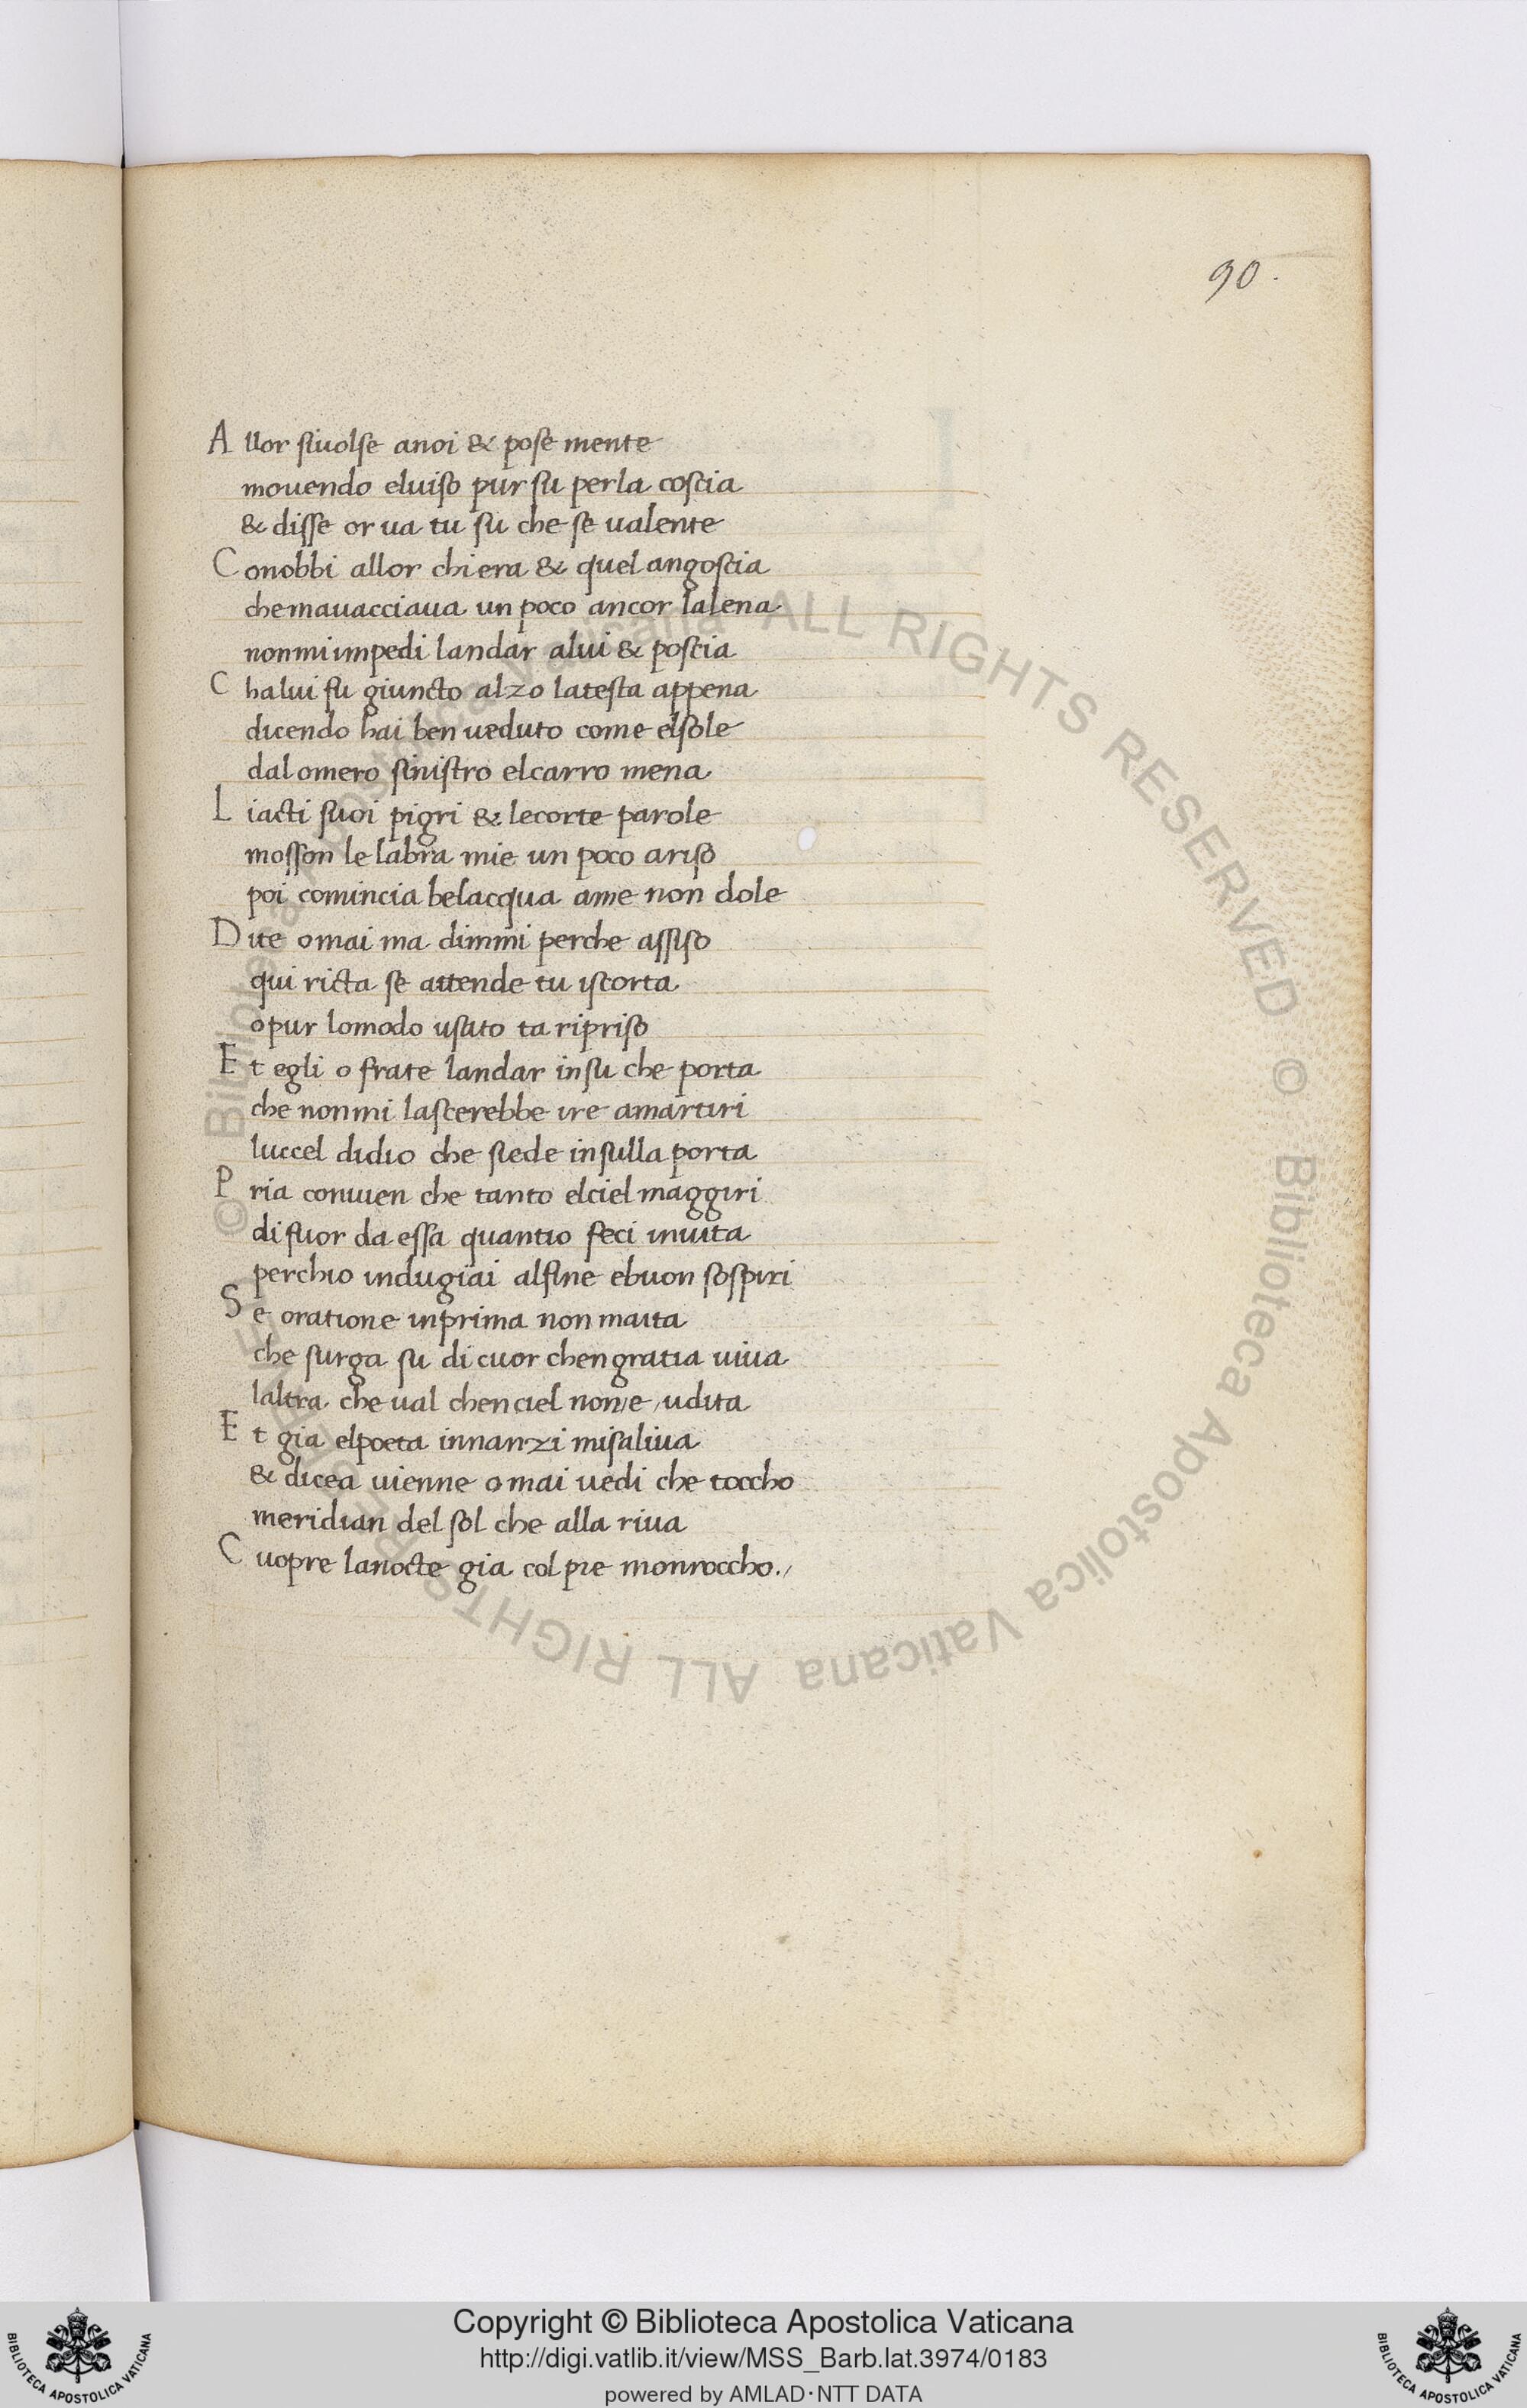 90.
Allor siuolse anoi & pose mente
mouendo eluiso pur su perla coscia
& disse or ua tu su che se ualente
Conobbi allor chi era & quel angoscia
chemauacciaua un poco ancor lalena
nonmi impedi landar alui & poscia
Chalui fu giuncto alzo latesta appena
dicendo hai ben ueduto come elsole
dal omero sinistro elcarro mena
Liacti suoi pigri & lecorte parole
mosson le labra mie un poco ariso
poi comincia belacqua ame non dole
Dite omai ma dimmi perche assiso
qui ricta se attende tu iscorta
opur lomodo usato ta ripriso
Et egli o frate landar insu che porta
che nonmi lascerebbe ire amartiri
luccel didio che siede insulla porta
Pria conuien che tanto elciel maggiri
difuor da essa quantio feci inuita
perchio indugiai alfine ebuon sospiri
Se oratione inprima non maita
che surga su di cuor chengratia uiua
laltra che ual chenciel non/e/udita
Et gia elpoeta innanzi misaliua
& dicea uienne omai uedi che toccho
meridian del sol che alla riua
Cuopre lanocte gia col pie monroccho./
© Biblioteca Apostolica Vaticana ALL RIGHTS RESERVED © Biblioteca Apostolica Vaticana ALL RIGHTS RESERVED
Copyright © Biblioteca Apostolica Vaticana
http://digi.vatlib.it/view/MSS_Barb.lat.3974/0183
powered by AMLAD·NTT DATA
BIBLIOTECA APOSTOLICA VATICANA
BIBLIOTECA APOSTOLICA VATICANA